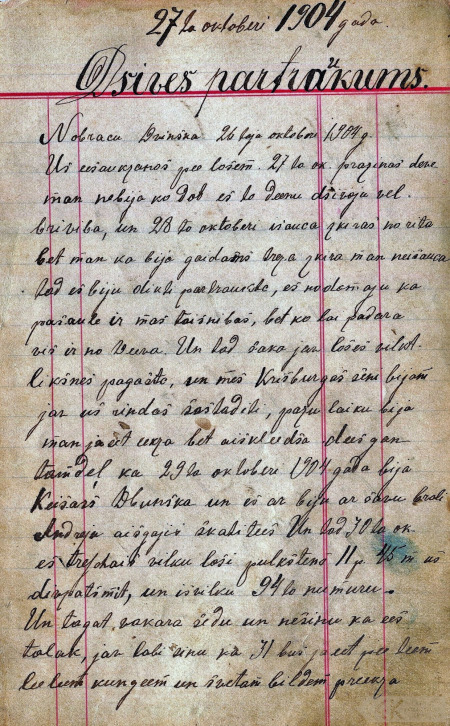 27 ta oktoberi 1904 gada.
Dsives partraukums.
Nobraucu Dvinska 26 bija oktoberi 1904 g.
Us eesaukjanos pee losem. 27 ta ok. prasinas deve
man nebija ko dot es to deenu dsivoju vel
briviba, un 28 ta oktoberi isauca skiras no rita
bet man ka bija gaidams skira man neisauca
tad es biju dikti partraukts, es nodomaju ka
pasaule ir mas taisnibas, bet ko lai padara
vis ir no Deeva. Un tad saka jau loses vilkt
liksnes pagasta, un mes Krisburgas seni bijam
jau us rindas sastaditi, pa to laiku bija
man jaeet
ka 29 ta oktoberi 1904 gada bija
Keisars Dvinska un es ar biju ar savu brali
Andreju aisgajis skatitees Un tad 30 ta ok
es treschais vilku losi pulkstens 11 p. 45 m us
divpatsmit, un isvilku 94 to numuru.
Un tagat vakara sedu un nesinu ka ees
talak, jau labi sinu ka 31 bus jaeet pee teem
leeleem kungeem un svetam bildem preeksa